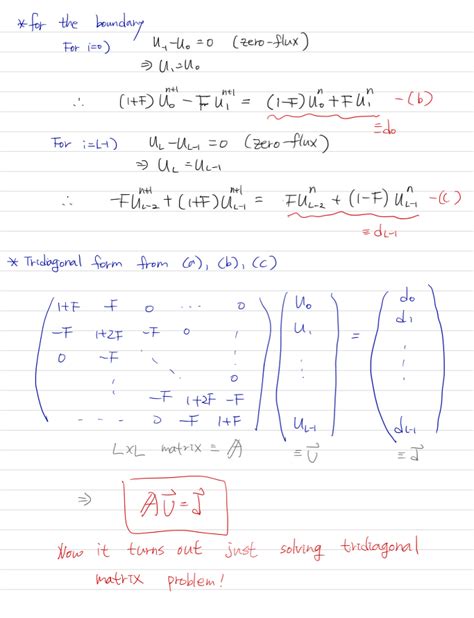 * for the boundary
For i=0) U₋₁-U₀ = 0 (zero-flux)
⇒ U₁=U₀
∴ (1+F)U₀ⁿ⁺¹ - FU₁ⁿ⁺¹ = (1-F)U₀ⁿ+FU₁ⁿ -(b)
≡d₀
For i=L-1) U_L - U_{L-1} = 0 (zero-flux)
⇒ U_L = U_{L-1}
∴ -FU_{L-2}ⁿ⁺¹ + (1+F)U_{L-1}ⁿ⁺¹ = FU_{L-2}ⁿ + (1-F) U_{L-1}ⁿ -(c)
≡ d_{L-1}
* Tridagonal form from (a), (b), (c)
1+F -F 0 ⋯ 0 U₀ d₀
-F 1+2F -F 0 ⋮ U₁ = d₁
0 -F ⋱ ⋮ ⋮
⋮ ⋱ ⋱ 0
-F 1+2F -F
⋯ 0 -F 1+F U_{L-1} d_{L-1}
L×L matrix ≡ A ≡ U⃗ ≡ d⃗
⇒ AU⃗=d⃗
Now it turns out just solving tridiagonal
matrix problem!